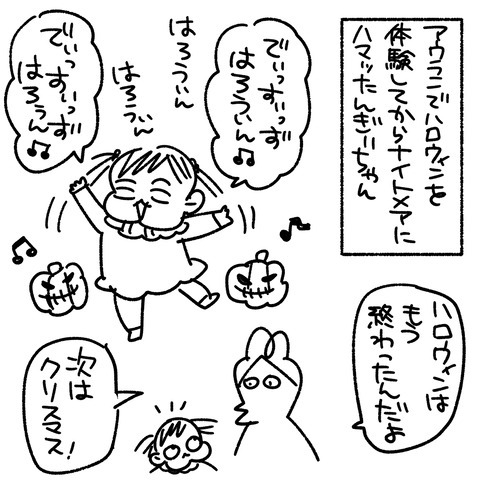 アウコンでハロウィンを
体験してからナイトメアに
ハマッたんぎぃちゃん
でぃっすぃっず
はろうぃん♫
はろうぃん
はろうぃん
でぃっすぃっず
はろうぃん♫
ハロウィンは
もう
終わったんだよ
次は
クリスマス!